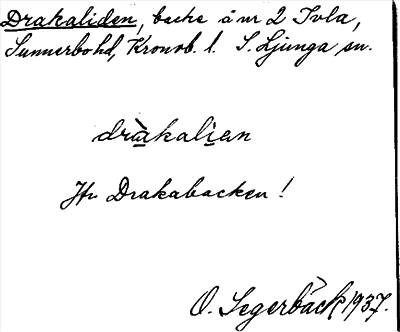 Drakaliden, backe å nr 2 Ivla,
Sunnerbo hd, Kronob. l. S. Ljunga sn.
dràkalian
Jfr Drakabacken!
O. Segerbäck 1937.